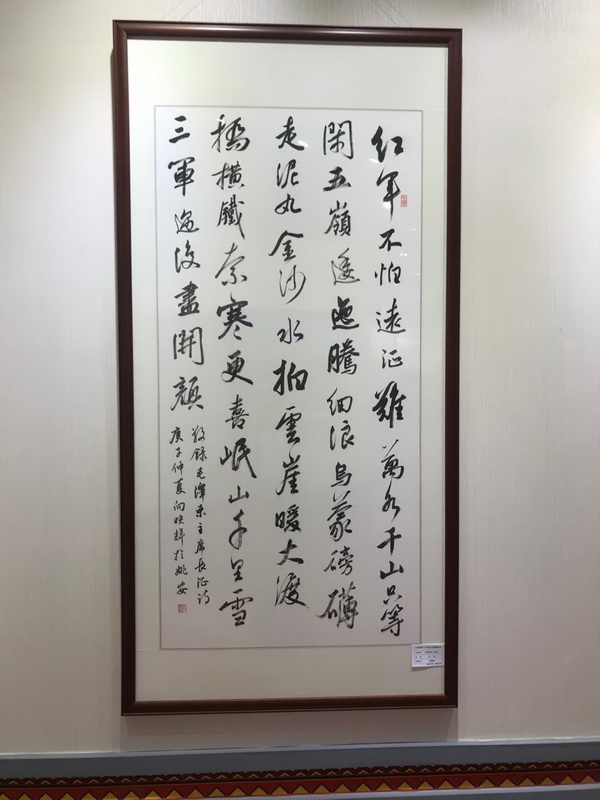 红军不怕遠征難萬水千山只等
閑五嶺逶迤騰細浪烏蒙磅礴
走泥丸金沙水拍雲崖暖大渡
橋橫鐵索寒更喜岷山千里雪
三軍過後盡開顏
敬録毛澤東主席長征詩
庚子仲夏向映輝於姚安